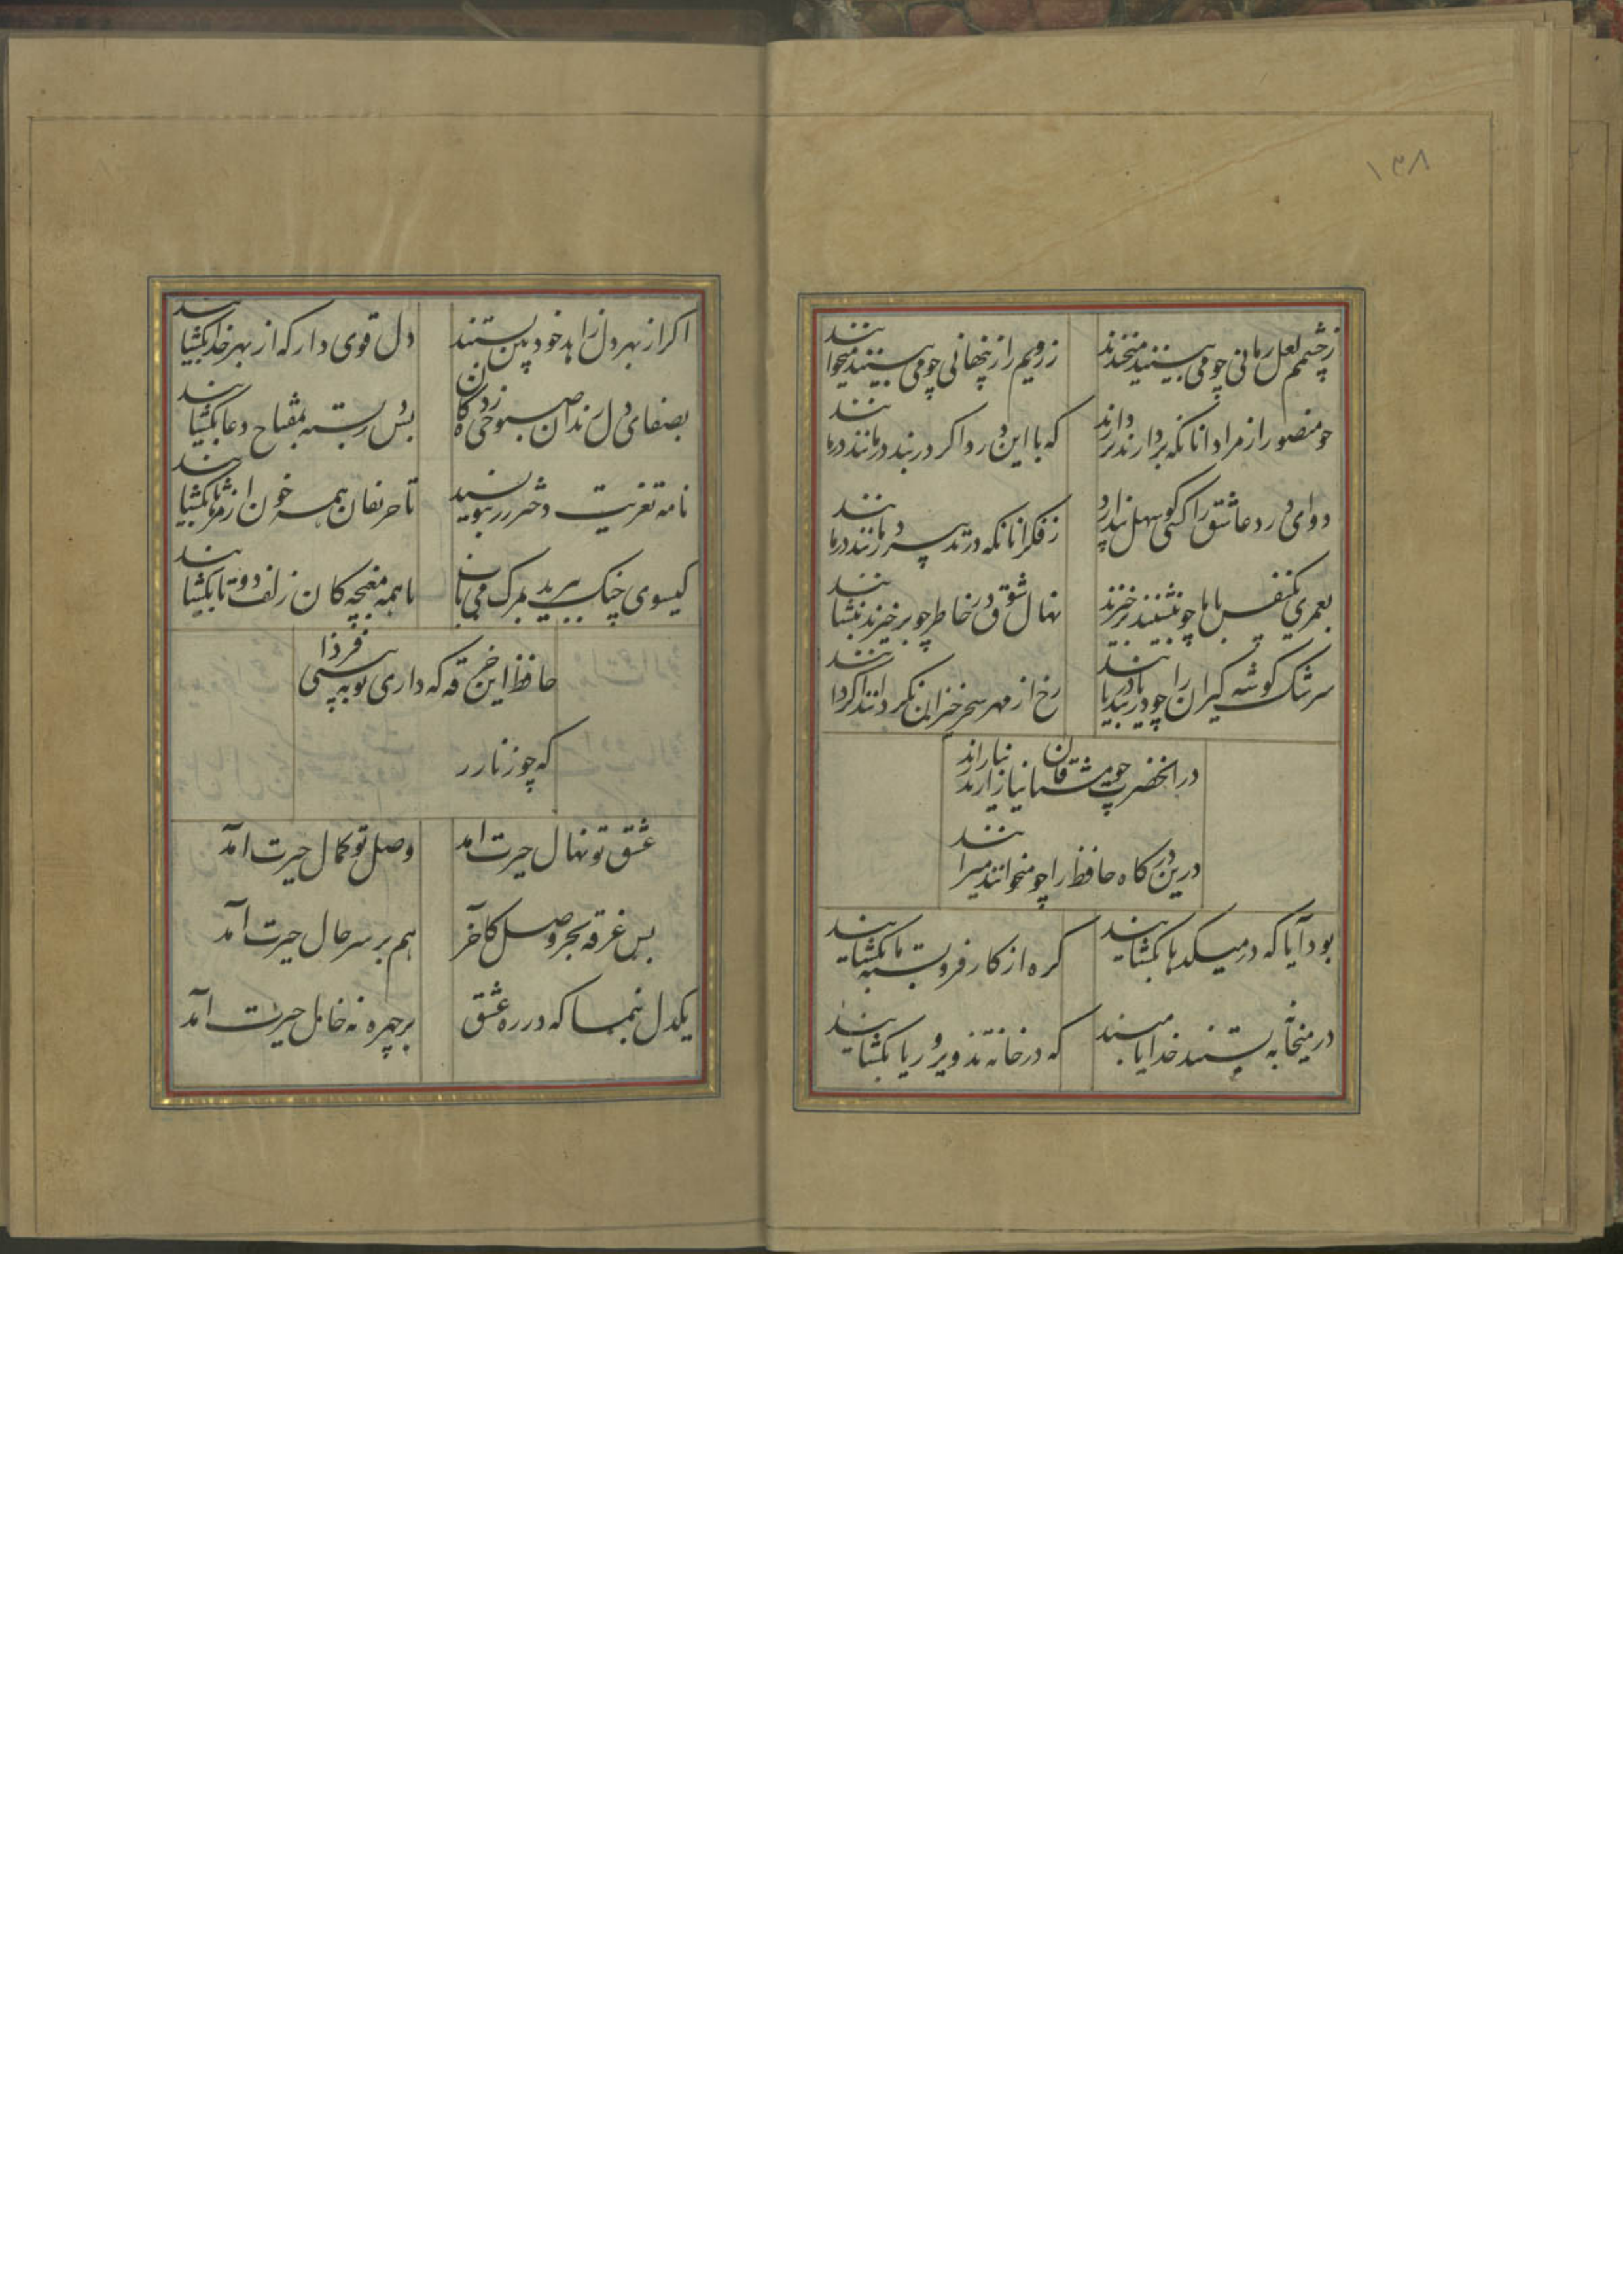 ۱۳۸
زچشمم لعل رمانی چو می بینند میخندند
زرویم راز پنهانی چو می بینند میخوانند
چو منصور از مراد انانکه بردارند بردارند
که با این درد اگر دربند درمانند درمانند
دوای درد عاشق را کسی کو سهل پندارد
زفکر انانکه در تدبیر درمانند درمانند
بعمری یکنفس با ما چو بنشینند برخیزند
نهال شوق در خاطر چو برخیزند بنشانند
سرشک گوشه گیران را چو دریابند دریابند
رخ از مهر سحرخیزان نگردانند اگر دانند
در انحضرت چو مشتاقان نیاز ارند ناز ارند
درین درگاه حافظ را چو میخوانند میرانند
بود آیا که در میکدها بگشایند
گره از کار فروبسته ما بگشایند
در میخانه ببستند خدایا مپسند
که در خانه تذویر و ریا بگشایند
اگر از بهر دل زاهد خودبین بستند
دل قوی دار که از بهر خدا بگشایند
بصفای دل رندان صبوحی زدگان
بس در بسته بمفتاح دعا بگشایند
نامه تعزیت دختر رز بنویسید
تا حریفان همه خون از مژها بگشایند
گیسوی چنگ ببرید بمرگ می ناب
تا همه مغبچه کان زلف دوتا بگشایند
حافظ این خرقه که داری تو ببینی فردا
که چو زنار ز
عشق تو نهال حیرت امد
وصل تو کمال حیرت آمد
بس غرقه بحر وصل کآخر
هم بر سر حال حیرت آمد
یکدل بنما که در ره عشق
بر چهره نه خال حیرت آمد